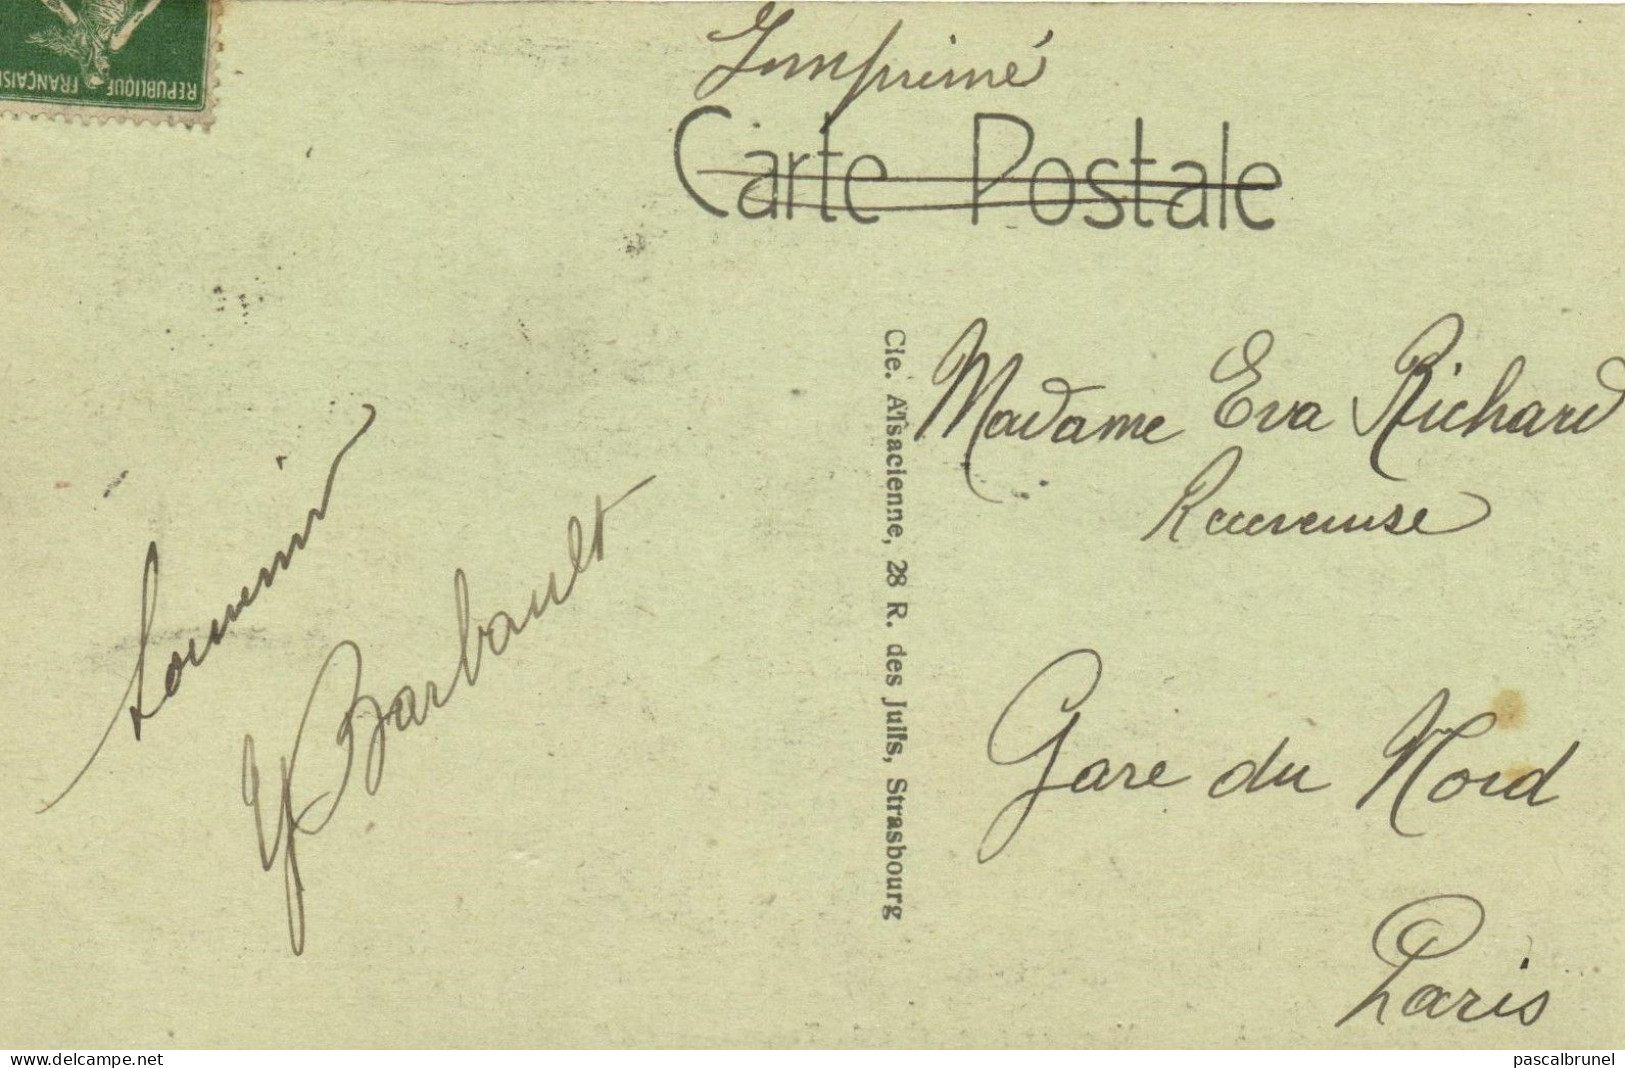 REPUBLIQUE FRANÇAISE
Imprimé
Carte Postale
Souvenir
Y Barbault
Cie. Alsacienne, 28 R. des Juifs, Strasbourg
Madame Eva Richard
Receveuse
Gare du Nord
Paris
www.delcampe.net
pascalbrunel